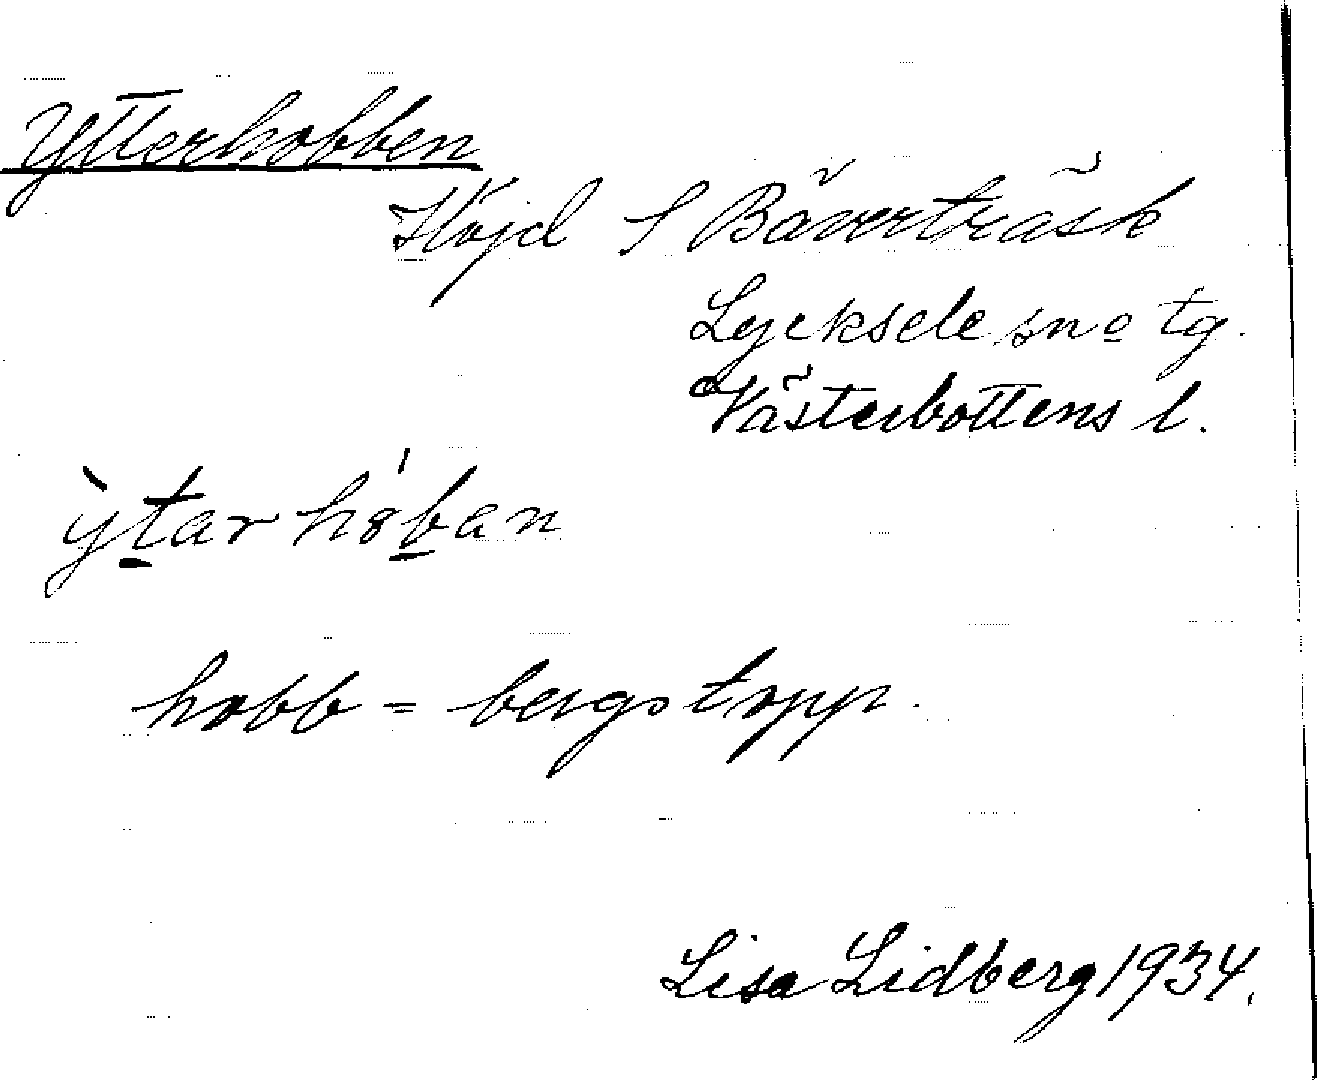 Ytterhobben
Höjd S Bäverträsk
Lycksele sn o tg.
Västerbottens l.
ỳtarhøban
hobb = bergstopp.
Lisa Lidberg 1934.